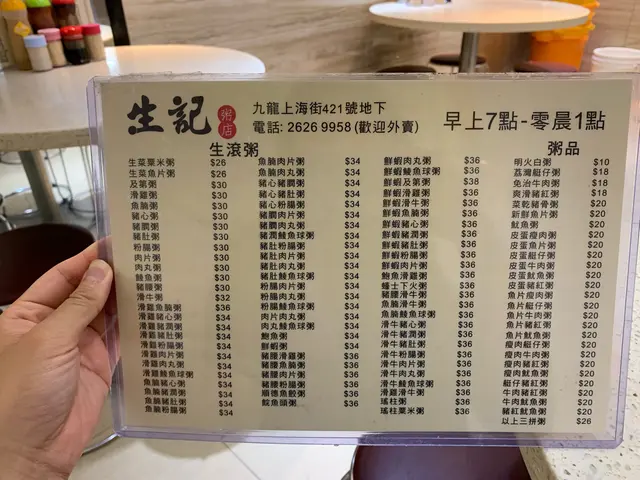 生記
粥店
九龍上海街421號地下
電話: 2626 9958 (歡迎外賣)
早上7點-零晨1點
生滾粥
生菜粟米粥 $26
生菜魚片粥 $26
及第粥 $30
滑雞粥 $30
魚腩粥 $30
豬心粥 $30
豬潤粥 $30
豬肚粥 $30
粉腸粥 $30
肉片粥 $30
肉丸粥 $30
鯪魚粥 $30
豬腰粥 $30
滑牛粥 $32
滑雞魚腩粥 $36
滑雞豬心粥 $34
滑雞豬潤粥 $34
滑雞豬肚粥 $34
滑雞粉腸粥 $34
滑雞肉片粥 $34
滑雞肉丸粥 $34
滑雞鯪魚球粥 $34
魚腩豬心粥 $34
魚腩豬潤粥 $34
魚腩豬肚粥 $34
魚腩粉腸粥 $34
魚腩肉片粥 $34
魚腩肉丸粥 $34
豬心豬潤粥 $34
豬心豬肚粥 $34
豬心粉腸粥 $34
豬潤肉片粥 $34
豬潤肉丸粥 $34
豬潤鯪魚球粥 $34
豬肚粉腸粥 $34
豬肚肉片粥 $34
豬肚肉丸粥 $34
豬肚鯪魚球粥 $34
粉腸肉片粥 $34
粉腸肉丸粥 $34
粉腸鯪魚球粥 $34
肉片肉丸粥 $34
肉丸鯪魚球粥 $34
鮑魚粥 $34
鮮蝦粥 $34
豬腰滑雞粥 $36
豬腰魚腩粥 $36
豬腰肉片粥 $36
豬腰粉腸粥 $36
順德魚餃粥 $36
鯇魚頭粥 $36
鮮蝦肉丸粥 $36
鮮蝦鯪魚球粥 $36
鮮蝦及第粥 $38
鮮蝦滑雞粥 $36
鮮蝦滑牛粥 $36
鮮蝦魚腩粥 $36
鮮蝦豬心粥 $36
鮮蝦豬潤粥 $36
鮮蝦豬肚粥 $36
鮮蝦粉腸粥 $36
鮮蝦肉片粥 $36
鮑魚滑雞粥 $36
蠔士下火粥 $36
豬腰滑牛粥 $36
魚腩滑牛粥 $36
魚腩鯪魚球粥 $36
滑牛豬心粥 $36
滑牛豬潤粥 $36
滑牛豬肚粥 $36
滑牛粉腸粥 $36
滑牛肉片粥 $36
滑牛肉丸粥 $36
滑牛鯪魚球粥 $36
滑雞滑牛粥 $36
瑤柱粥 $36
瑤柱粟米粥 $36
粥品
明火白粥 $10
荔灣艇仔粥 $18
免治牛肉粥 $18
爽滑豬紅粥 $18
菜乾豬骨粥 $20
新鮮魚片粥 $20
魷魚粥 $20
皮蛋瘦肉粥 $20
皮蛋魚片粥 $20
皮蛋艇仔粥 $20
皮蛋牛肉粥 $20
皮蛋魷魚粥 $20
皮蛋豬紅粥 $20
魚片瘦肉粥 $20
魚片艇仔粥 $20
魚片牛肉粥 $20
魚片豬紅粥 $20
魚片魷魚粥 $20
瘦肉艇仔粥 $20
瘦肉牛肉粥 $20
瘦肉豬紅粥 $20
瘦肉魷魚粥 $20
艇仔豬紅粥 $20
牛肉魷魚粥 $20
豬紅魷魚粥 $20
以上三拼粥 $26